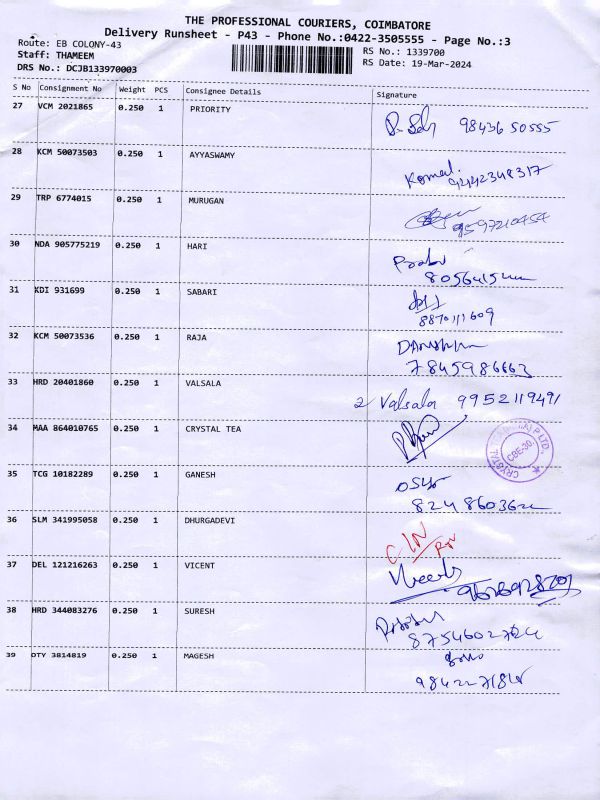 THE PROFESSIONAL COURIERS, COIMBATORE
Delivery Runsheet - P43 - Phone No.:0422-3505555 - Page No.:3
Route: EB COLONY-43
Staff: THAMEEM
DRS No.: DCJB133970003
RS No.: 1339700
RS Date: 19-Mar-2024
S No Consignment No Weight PCS Consignee Details Signature
27 VCM 2021865 0.250 1 PRIORITY 98436 50555
28 KCM 50073503 0.250 1 AYYASWAMY Komal. 9442348317
29 TRP 6774015 0.250 1 MURUGAN 9597210454
30 NDA 905775219 0.250 1 HARI
31 KDI 931699 0.250 1 SABARI 8870111609
32 KCM 50073536 0.250 1 RAJA 7845986663
33 HRD 20401860 0.250 1 VALSALA Valsala 9952119491
34 MAA 864010765 0.250 1 CRYSTAL TEA CBE-30.
35 TCG 10182289 0.250 1 GANESH
36 SLM 341995058 0.250 1 DHURGADEVI
37 DEL 121216263 0.250 1 VICENT
38 HRD 344083276 0.250 1 SURESH
39 OTY 3814819 0.250 1 MAGESH